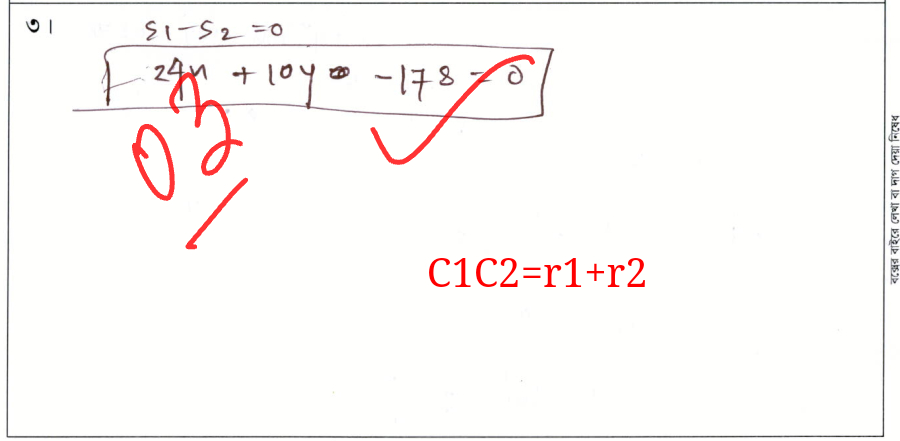 ৩।
S1-S2=0
-24x + 10y -178 = 0
03
C1C2=r1+r2
বক্সের বাইরে লেখা বা দাগ দেয়া নিষেধ